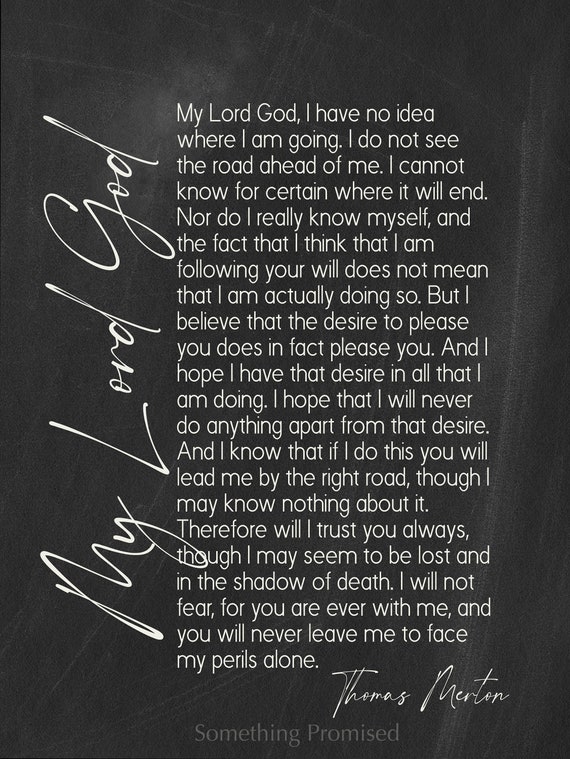 My Lord God
My Lord God, I have no idea
where I am going. I do not see
the road ahead of me. I cannot
know for certain where it will end.
Nor do I really know myself, and
the fact that I think that I am
following your will does not mean
that I am actually doing so. But I
believe that the desire to please
you does in fact please you. And I
hope I have that desire in all that I
am doing. I hope that I will never
do anything apart from that desire.
And I know that if I do this you will
lead me by the right road, though I
may know nothing about it.
Therefore will I trust you always,
though I may seem to be lost and
in the shadow of death. I will not
fear, for you are ever with me, and
you will never leave me to face
my perils alone.
Thomas Merton
Something Promised